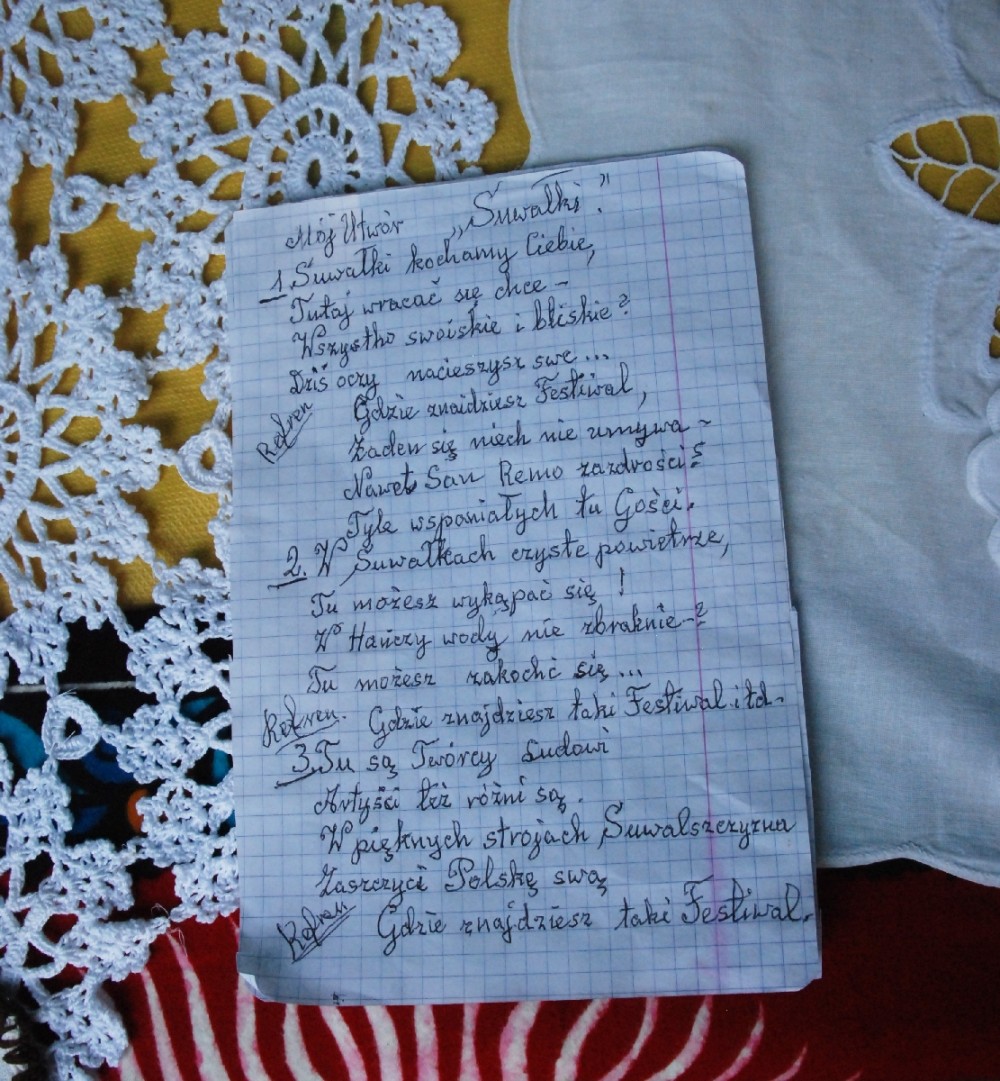 Mój Utwór „Suwałki".
1. Suwałki kochamy Ciebie,
Tutaj wracać się chce –
Wszystko swoiskie i bliskie?
Dziś oczy nacieszysz swe...
Refren Gdzie znaidziesz Festiwal,
Żaden się niech nie umywa –
Nawet San Remo zazdrości?
Tyle wspaniałych tu Gości.
2. W Suwałkach czyste powietrze,
Tu możesz wykąpać się !
W Hańczy wody nie zbraknie –?
Tu możesz zakochć się...
Refren. Gdzie znajdziesz taki Festiwal itd.
3. Tu są Twórcy Ludowi
Artyści też różni są.
W pięknych strojach Suwalszczyzna
Zaszczyci Polskę swą
Refren Gdzie znajdziesz taki Festiwal.